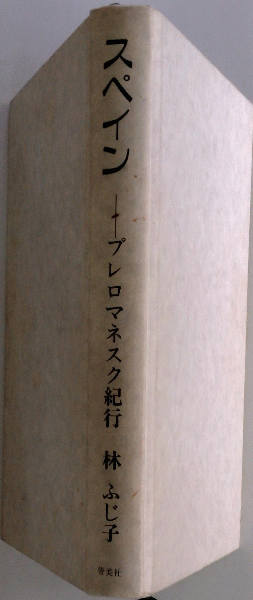 スペイン
プレロマネスク紀行
林 ふじ子
皆美社